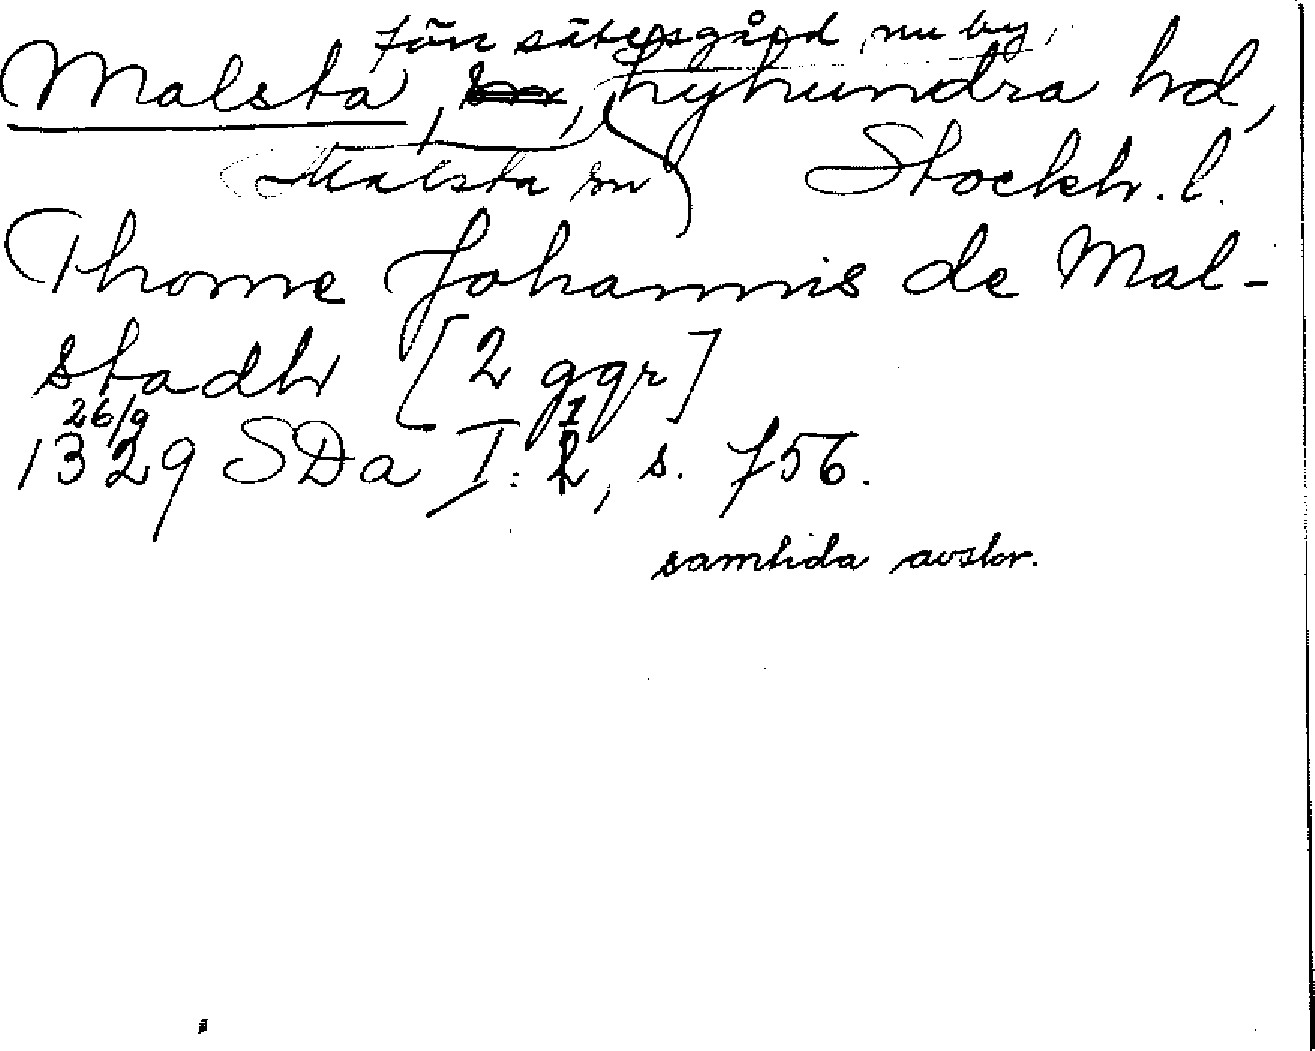 förr sätesgård, nu by,
Malsta, sn, Lyhundra hd,
Malsta sn Stockh. l.
Thome Johannis de Mal-
stadh [2 ggr]
26/9
1329 SDa I: 1, s. 756.
samtida avskr.